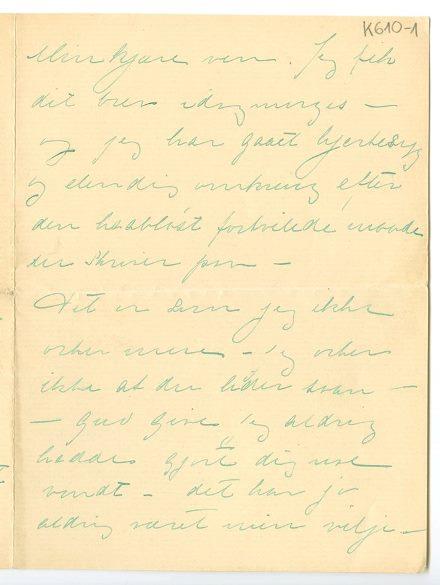 K610-1
Min kjære ven. Jeg fik
dit brev idag morges –
og jeg har gaaet hjertesyg
og elendig omkring efter
den haabløst fortvilede maade
du skriver paa –
Det er som jeg ikke
orker mere – jeg orker
ikke at du lider saan –
– gud give jeg aldrig
hadde gjort dig noe
vondt – det har jo
aldrig været min vilje –